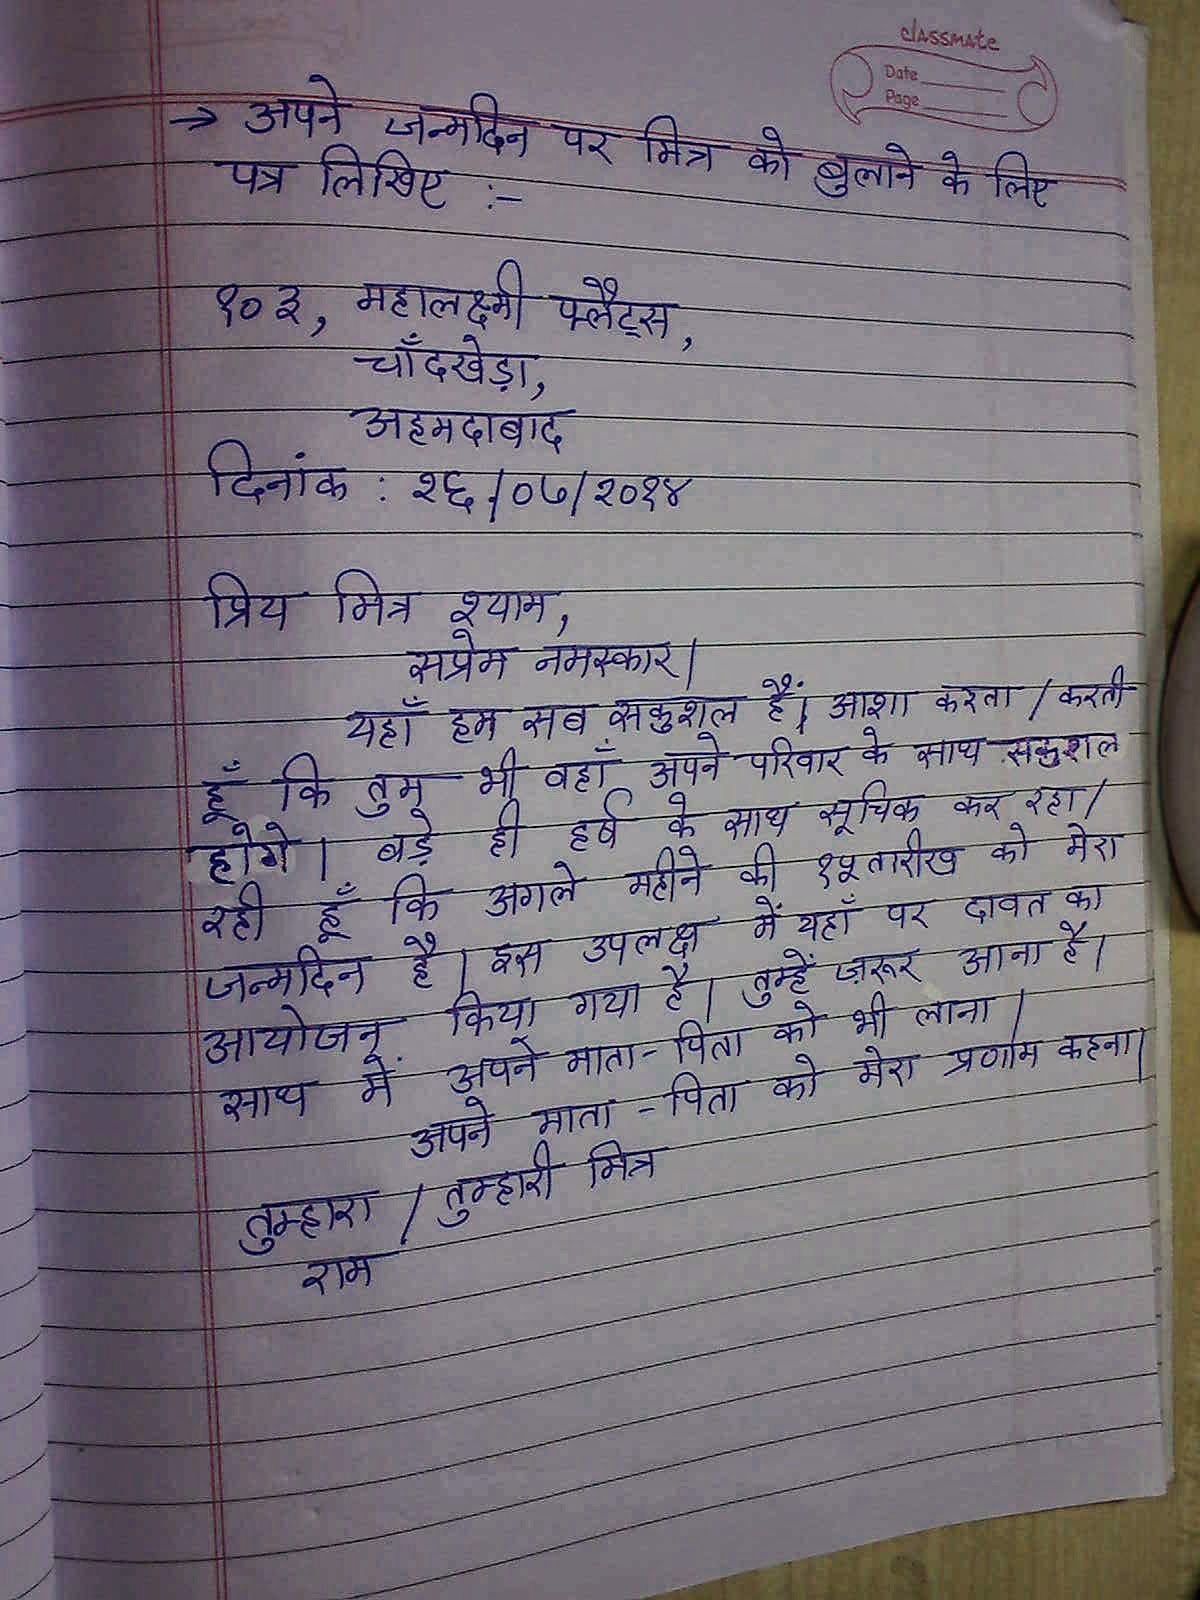 classmate
Date
Page
→ अपने जन्मदिन पर मित्र को बुलाने के लिए
पत्र लिखिए :-
१०३, महालक्ष्मी फ्लैट्स,
चाँदखेड़ा,
अहमदाबाद
दिनांक : २६/०७/२०१४
प्रिय मित्र श्याम,
सप्रेम नमस्कार।
यहाँ हम सब सकुशल हैं। आशा करता / करती
हूँ कि तुम भी वहाँ अपने परिवार के साथ सकुशल
होगे। बड़े ही हर्ष के साथ सूचिक कर रहा/
रही हूँ कि अगले महीने की १५ तारीख को मेरा
जन्मदिन है। इस उपलक्ष में यहाँ पर दावत का
आयोजन किया गया है। तुम्हें ज़रूर आना है।
साथ में अपने माता-पिता को भी लाना।
अपने माता-पिता को मेरा प्रणाम कहना।
तुम्हारा / तुम्हारी मित्र
राम